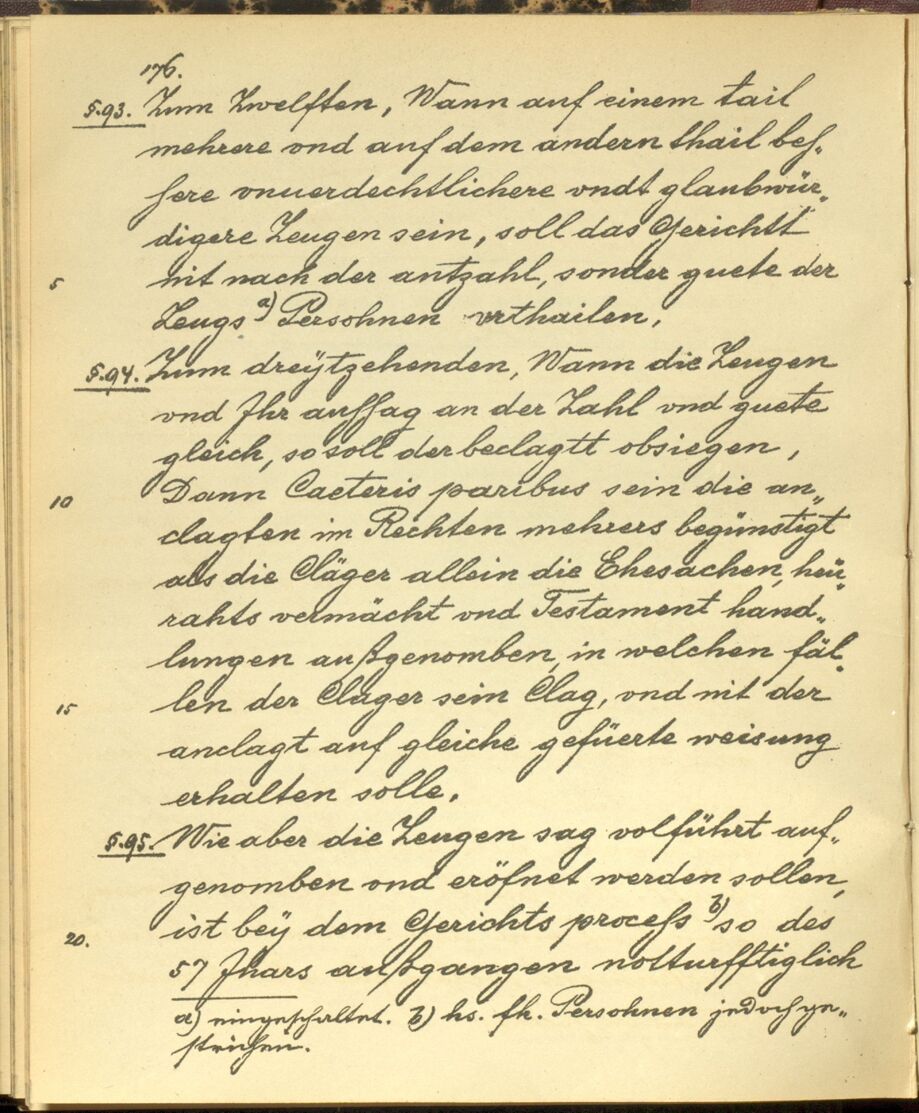 176.
§.93. Zum Zwelften, Wann auf einem tail
mehrere vnd auf dem andern thail bes-
sere vnuerdechtlichere vndt glaubwür-
digere Zeugen sein, soll das Gerichtt
5 nit nach der antzahl, sonder guete der
Zeugs a) Persohnen vrthailen.
§.94. Zum dreÿtzehenden, Wann die Zeugen
vnd Jhr aussag an der Zahl vnd guete
gleich, so soll der beclagtt obsiegen,
10 Dann Caeteris paribus sein die an„
clagten im Rechten mehrers begünstigt
als die Cläger allein die Ehesachen, heü-
rahts vermächt vnd Testament hand„
lungen außgenomben, in welchen fäl-
15 len der Cläger sein Clag, vnd nit der
anclagt auf gleiche gefüerte weisung
erhalten solle.
§.95. Wie aber die Zeugen sag volführt auf-
genomben vnd eröfnet werden sollen,
20. ist beÿ dem Gerichts process b) so des
57 Jhars außgangen notturfftiglich
a) eingeschaltet. b) hs. fh. Persohnen jedoch ge„
strichen.